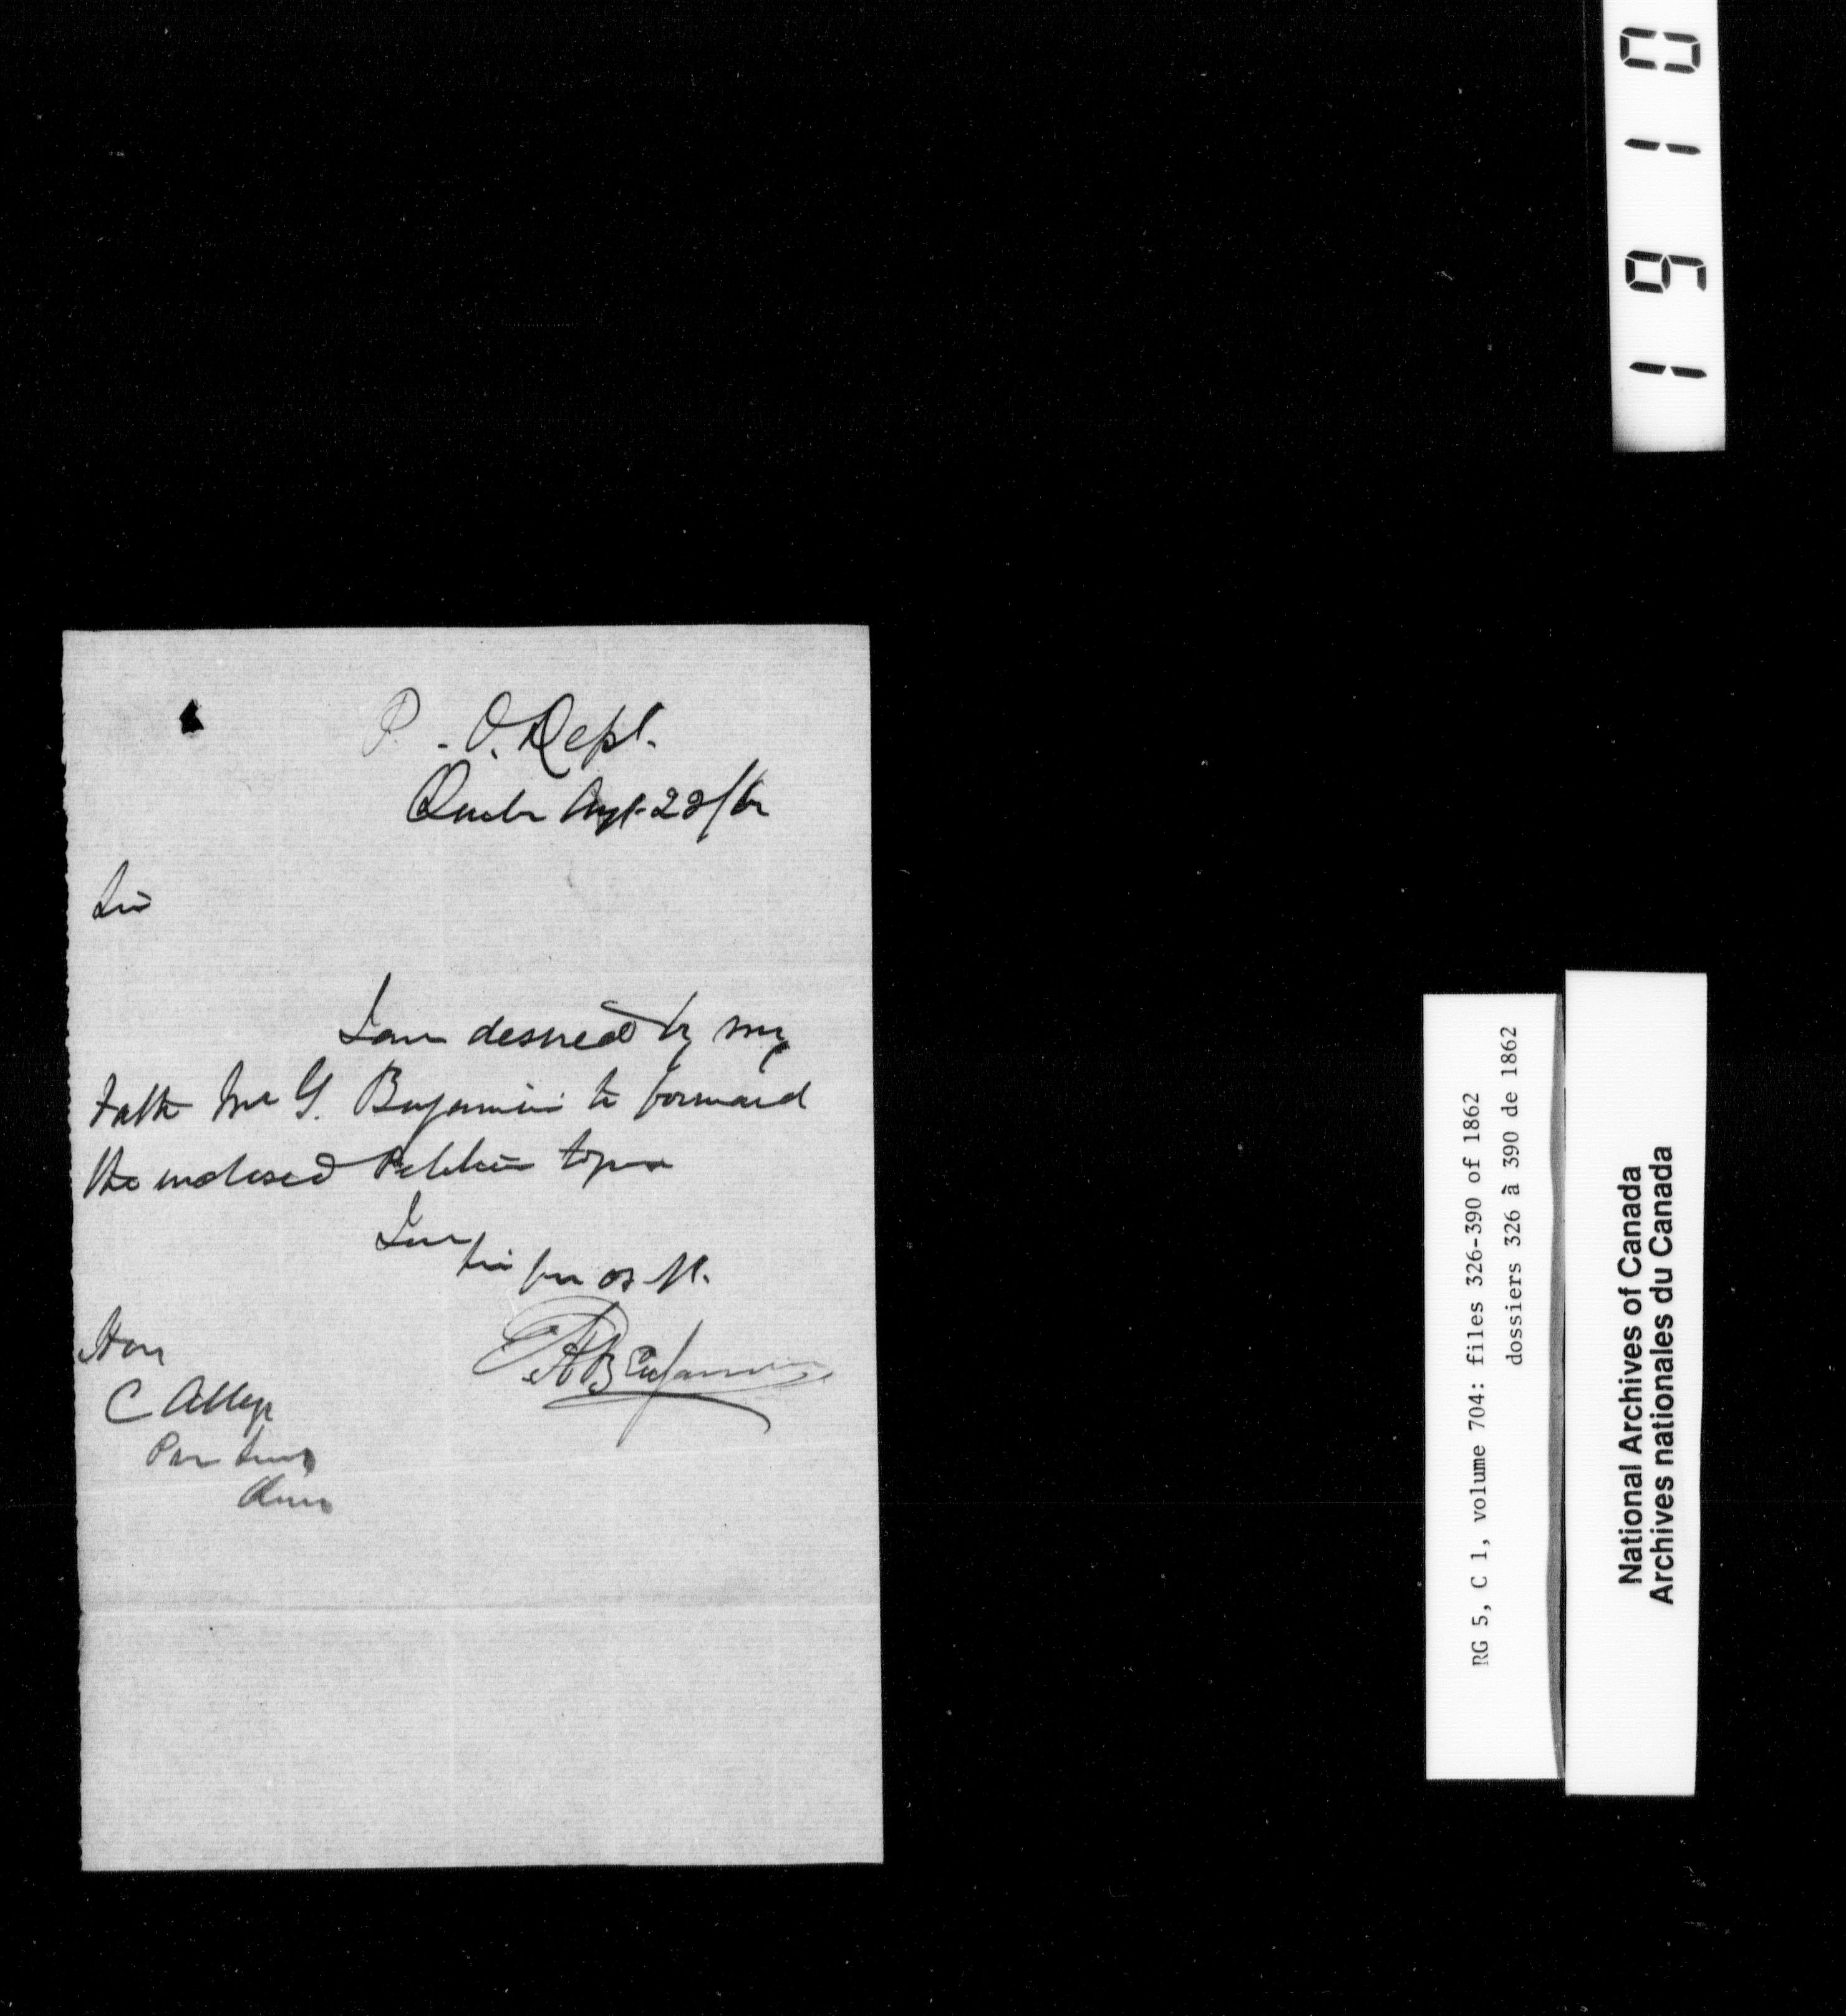 P. O. Dept.
Quebec Augt 22/62
Sir
I am desired by my
Father Mr G. Benjamin to forward
the inclosed Petition to you
I am
Sir
Benjamin
Hon
C Alleyn
1910
RG 5, C 1, volume 704: files 326-390 of 1862
dossiers 326 à 390 de 1862
National Archives of Canada
Archives nationales du Canada